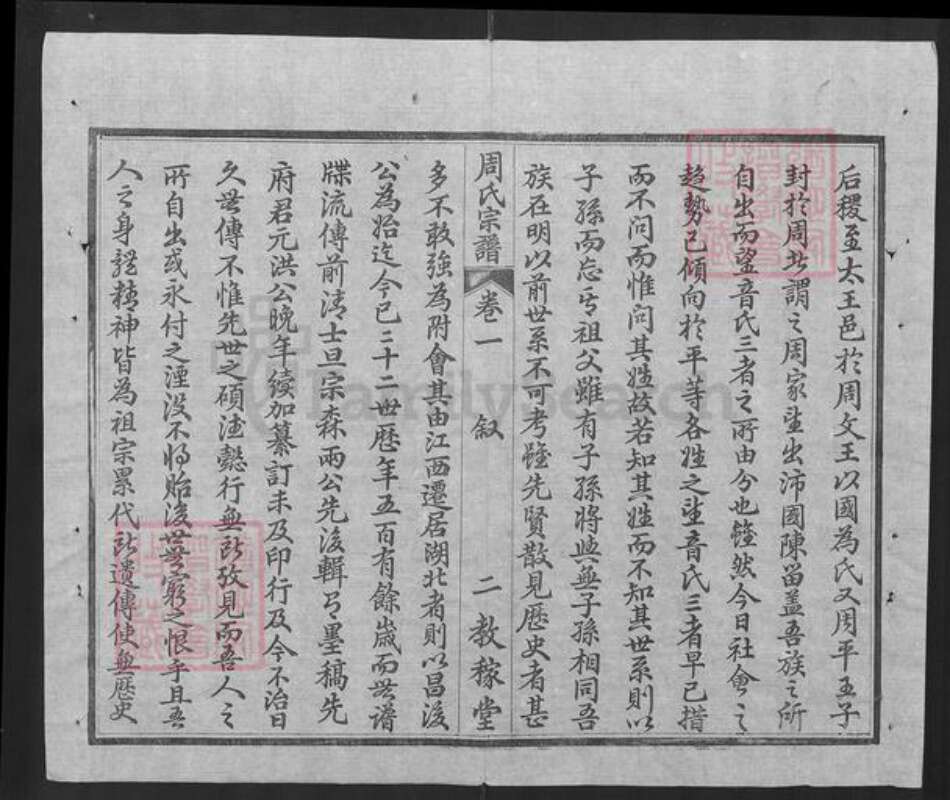 后稷至太王邑於周文王以國為氏又周平王子
封於周此謂之周家望出沛國陳留蓋吾族之所
自出而望音氏三者之所由分也雖然今日社會之
趨勢已傾向於平等各姓之望音氏三者早已措
而不問而惟問其姓故若知其姓而不知其世系則以
子孫而忘其祖父雖有子孫將與無子孫相同吾
族在明以前世系不可考雖先賢散見歷史者甚
周氏宗譜 卷一 敘 二 教稼堂
多不敢強為附會其由江西遷居湖北者則以昌後
公為始迄今已二十二世歷年五百有餘歲而世譜
牒流傳前清士旦宗森兩公先後輯有墨稿先
府君元洪公晚年續加纂訂未及印行及今不治日
久無傳不惟先世之碩德懿行無所攷見而吾人之
所自出或永付之湮沒不將貽後世無窮之恨乎且吾
人之身體精神皆為祖宗累代所遺傳使無歷史
FamilySearch